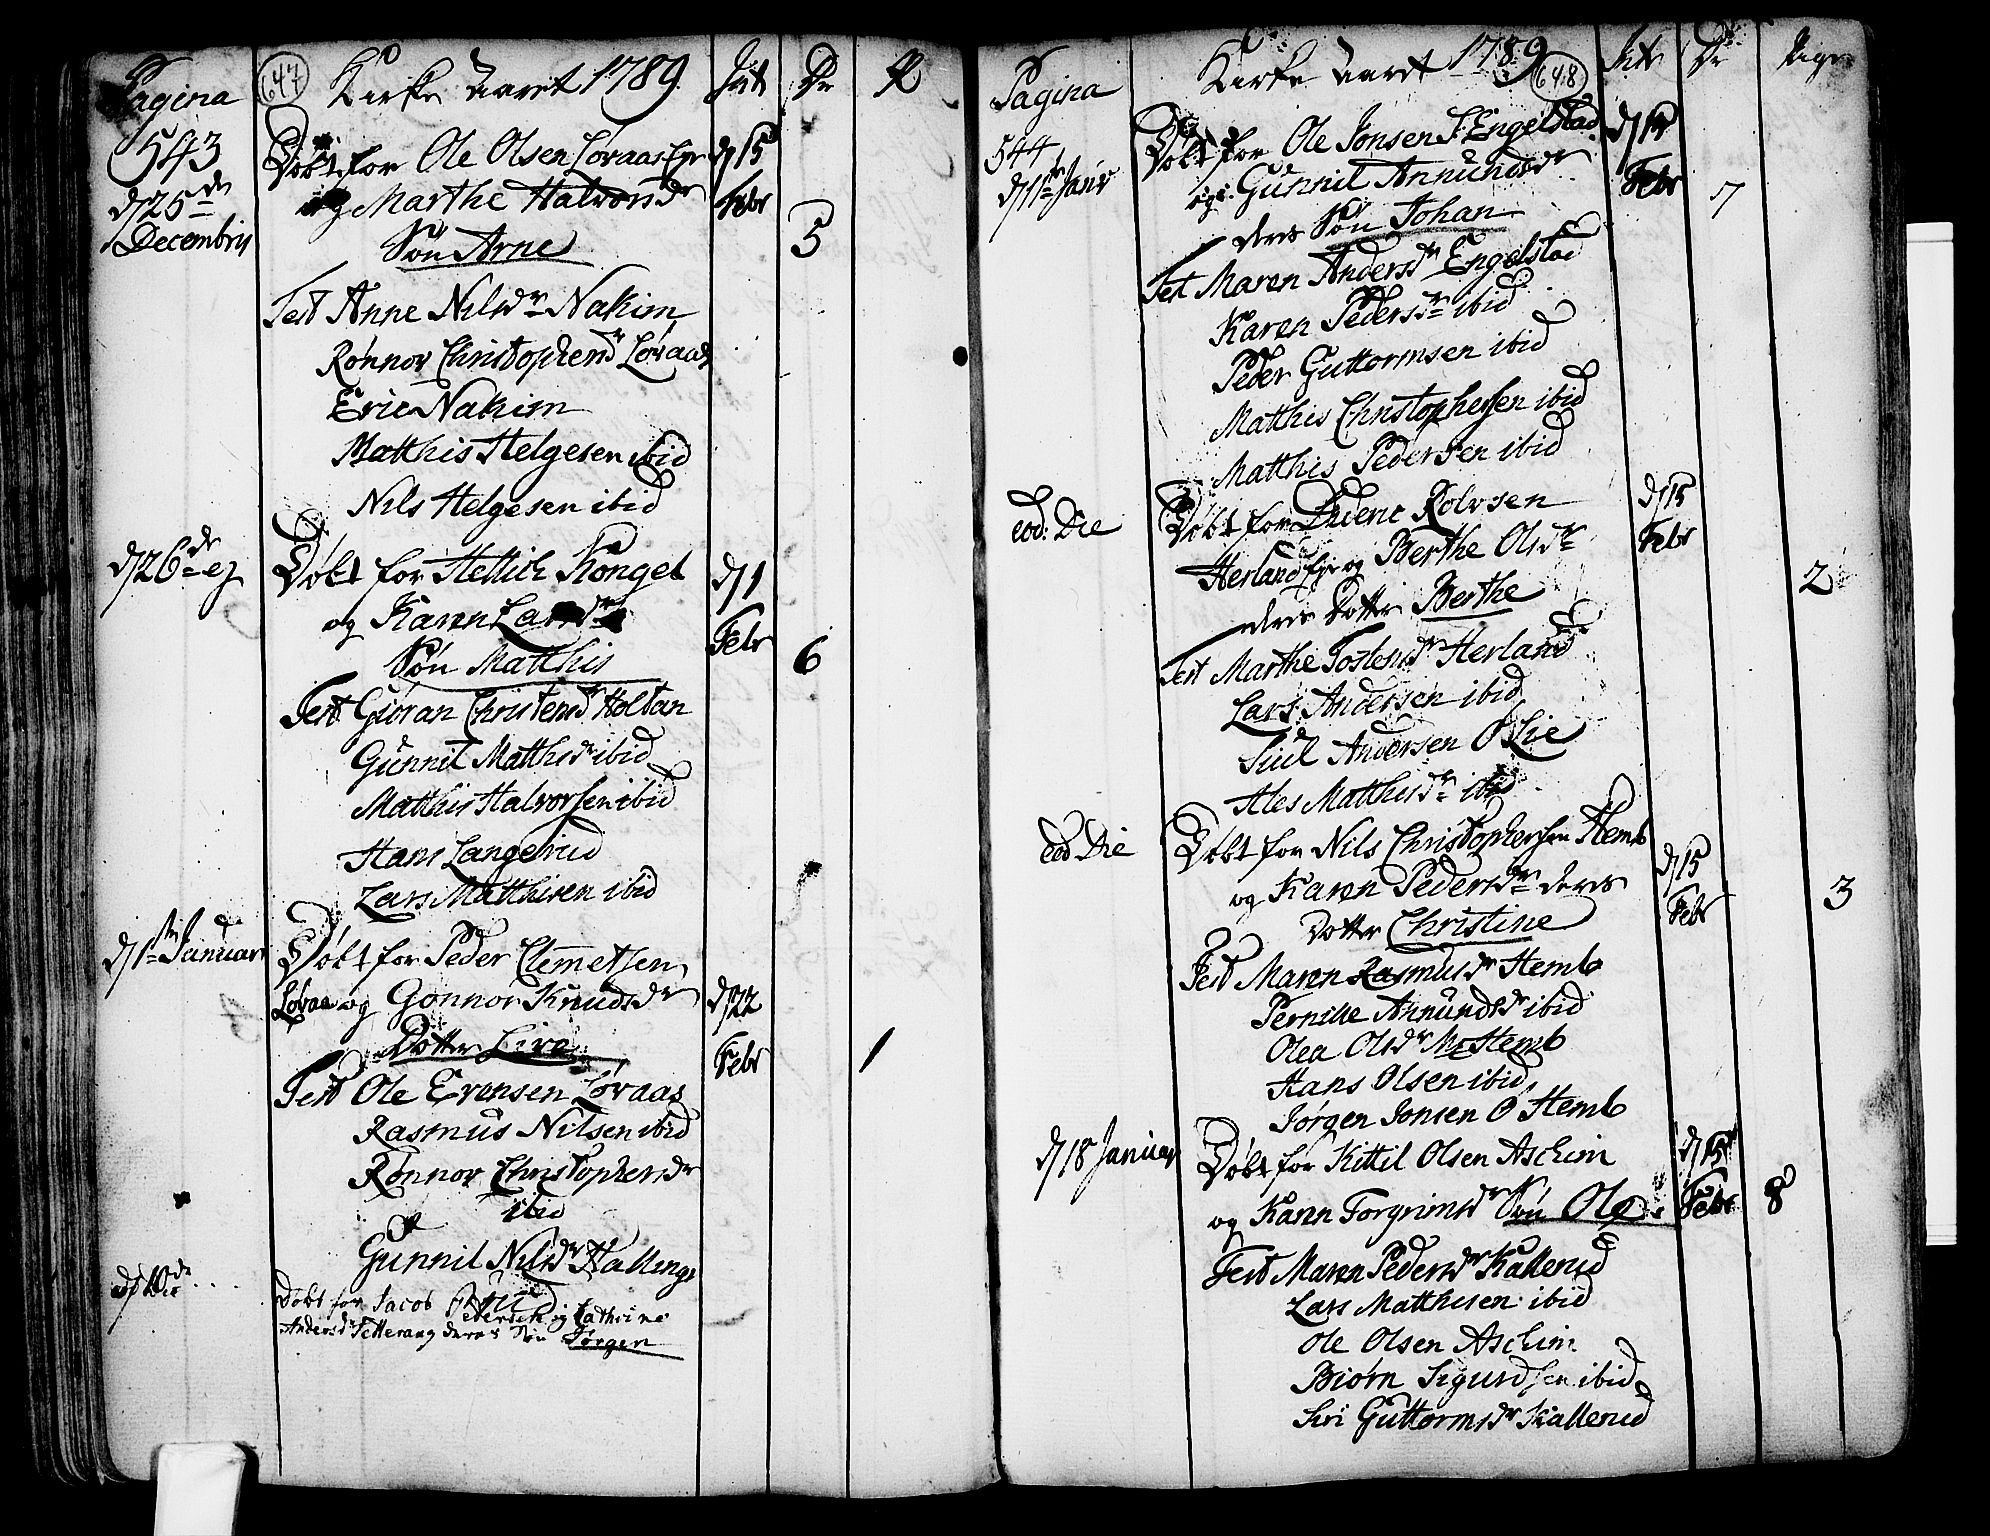 Pagina 647 Kirke Aaret 1789 Int Dr P
543
d/25de Decembris
Døbt for Ole Olsen Løraas d/15
og Marthe Halvorsdr Febr
Søn Arne 5
Test Anne Nilsdr Nakim
Rønnor Christophersdr Løraas
Eric Nakim
Matthis Helgesen ibid
Nils Helgesen ibid
d/26de ej Døbt for Hellich Konget d/1
og Karen Febr
Søn Matthis 6
Test Giøran Christensdr Holtan
Gunnil Matthisdr ibid
Matthis Halvorsen ibid
Hans Langerud
Lars Matthisen ibid
d/1te Januari Døbt for Peder Clemetsen
Løraas og Gonnor Knudsdr d/22
Dotter Live Febr 1
Test Ole Evensen Løraas
Rasmus Nilsen ibid
Rønnor Christophersdr
ibid
Gunnil Nilsdr Hallinge
Døbt for Jacob Pedersen og Cathrine
Andersdr deres Søn Jørgen
Pagina Kirke Aaret 1789 648 Int Dr Piger
544
d/1te Janv Døbt for Ole Jonsen Engelstad d/15
og Gunnil Annundsdr Febr 7
deres Søn Johan
Test Maren Andersdr Engelstad
Karen Pedersdr ibid
Peder Guttormsen ibid
Matthis Christophersen ibid
Matthis Pedersen ibid
eod: Die Døbt for Rolvsen d/15
Herland og Berthe Olsdr Febr
deres Dotter Berthe 2
Test Marthe Tostensdr Herland
Lars Andersen ibid
Siul Andersen Ø Lie
Ales Matthisdr ibid
eod Die Døbt for Nils Christophersen Hemb d/15
og Karen Pedersdr deres Febr 3
Dotter Christine
Test Maren Rasmusdr Hemb
Pernille Annundsdr ibid
Olea Olsdr M Hemb
Hans Olsen ibid
Jørgen Jonsen Ø Hemb
d/18 Januar Døbt for Kittil Olsen Aschim d/15
og Karen Torgrimsdr Søn Ole Febr 8
Test Maren Pedersdr Kallerud
Lars Matthisen ibid
Ole Olsen Aschim
Biørn Sigurdsen ibid
Siri Guttormsdr Kallerud